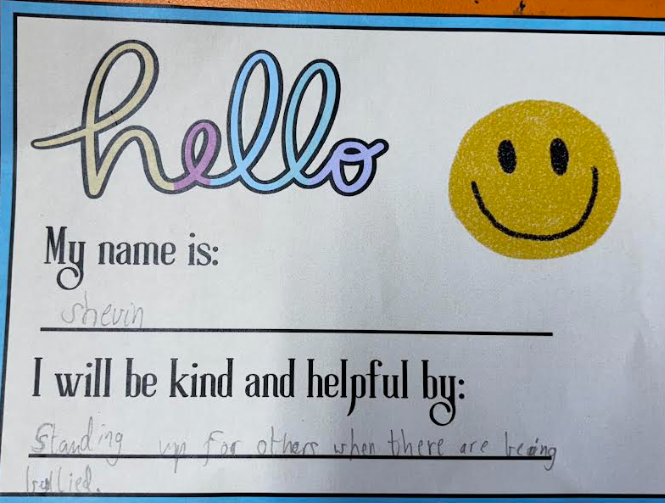 hello
My name is:
shevin
I will be kind and helpful by:
Standing up for others when there are being
bullied.